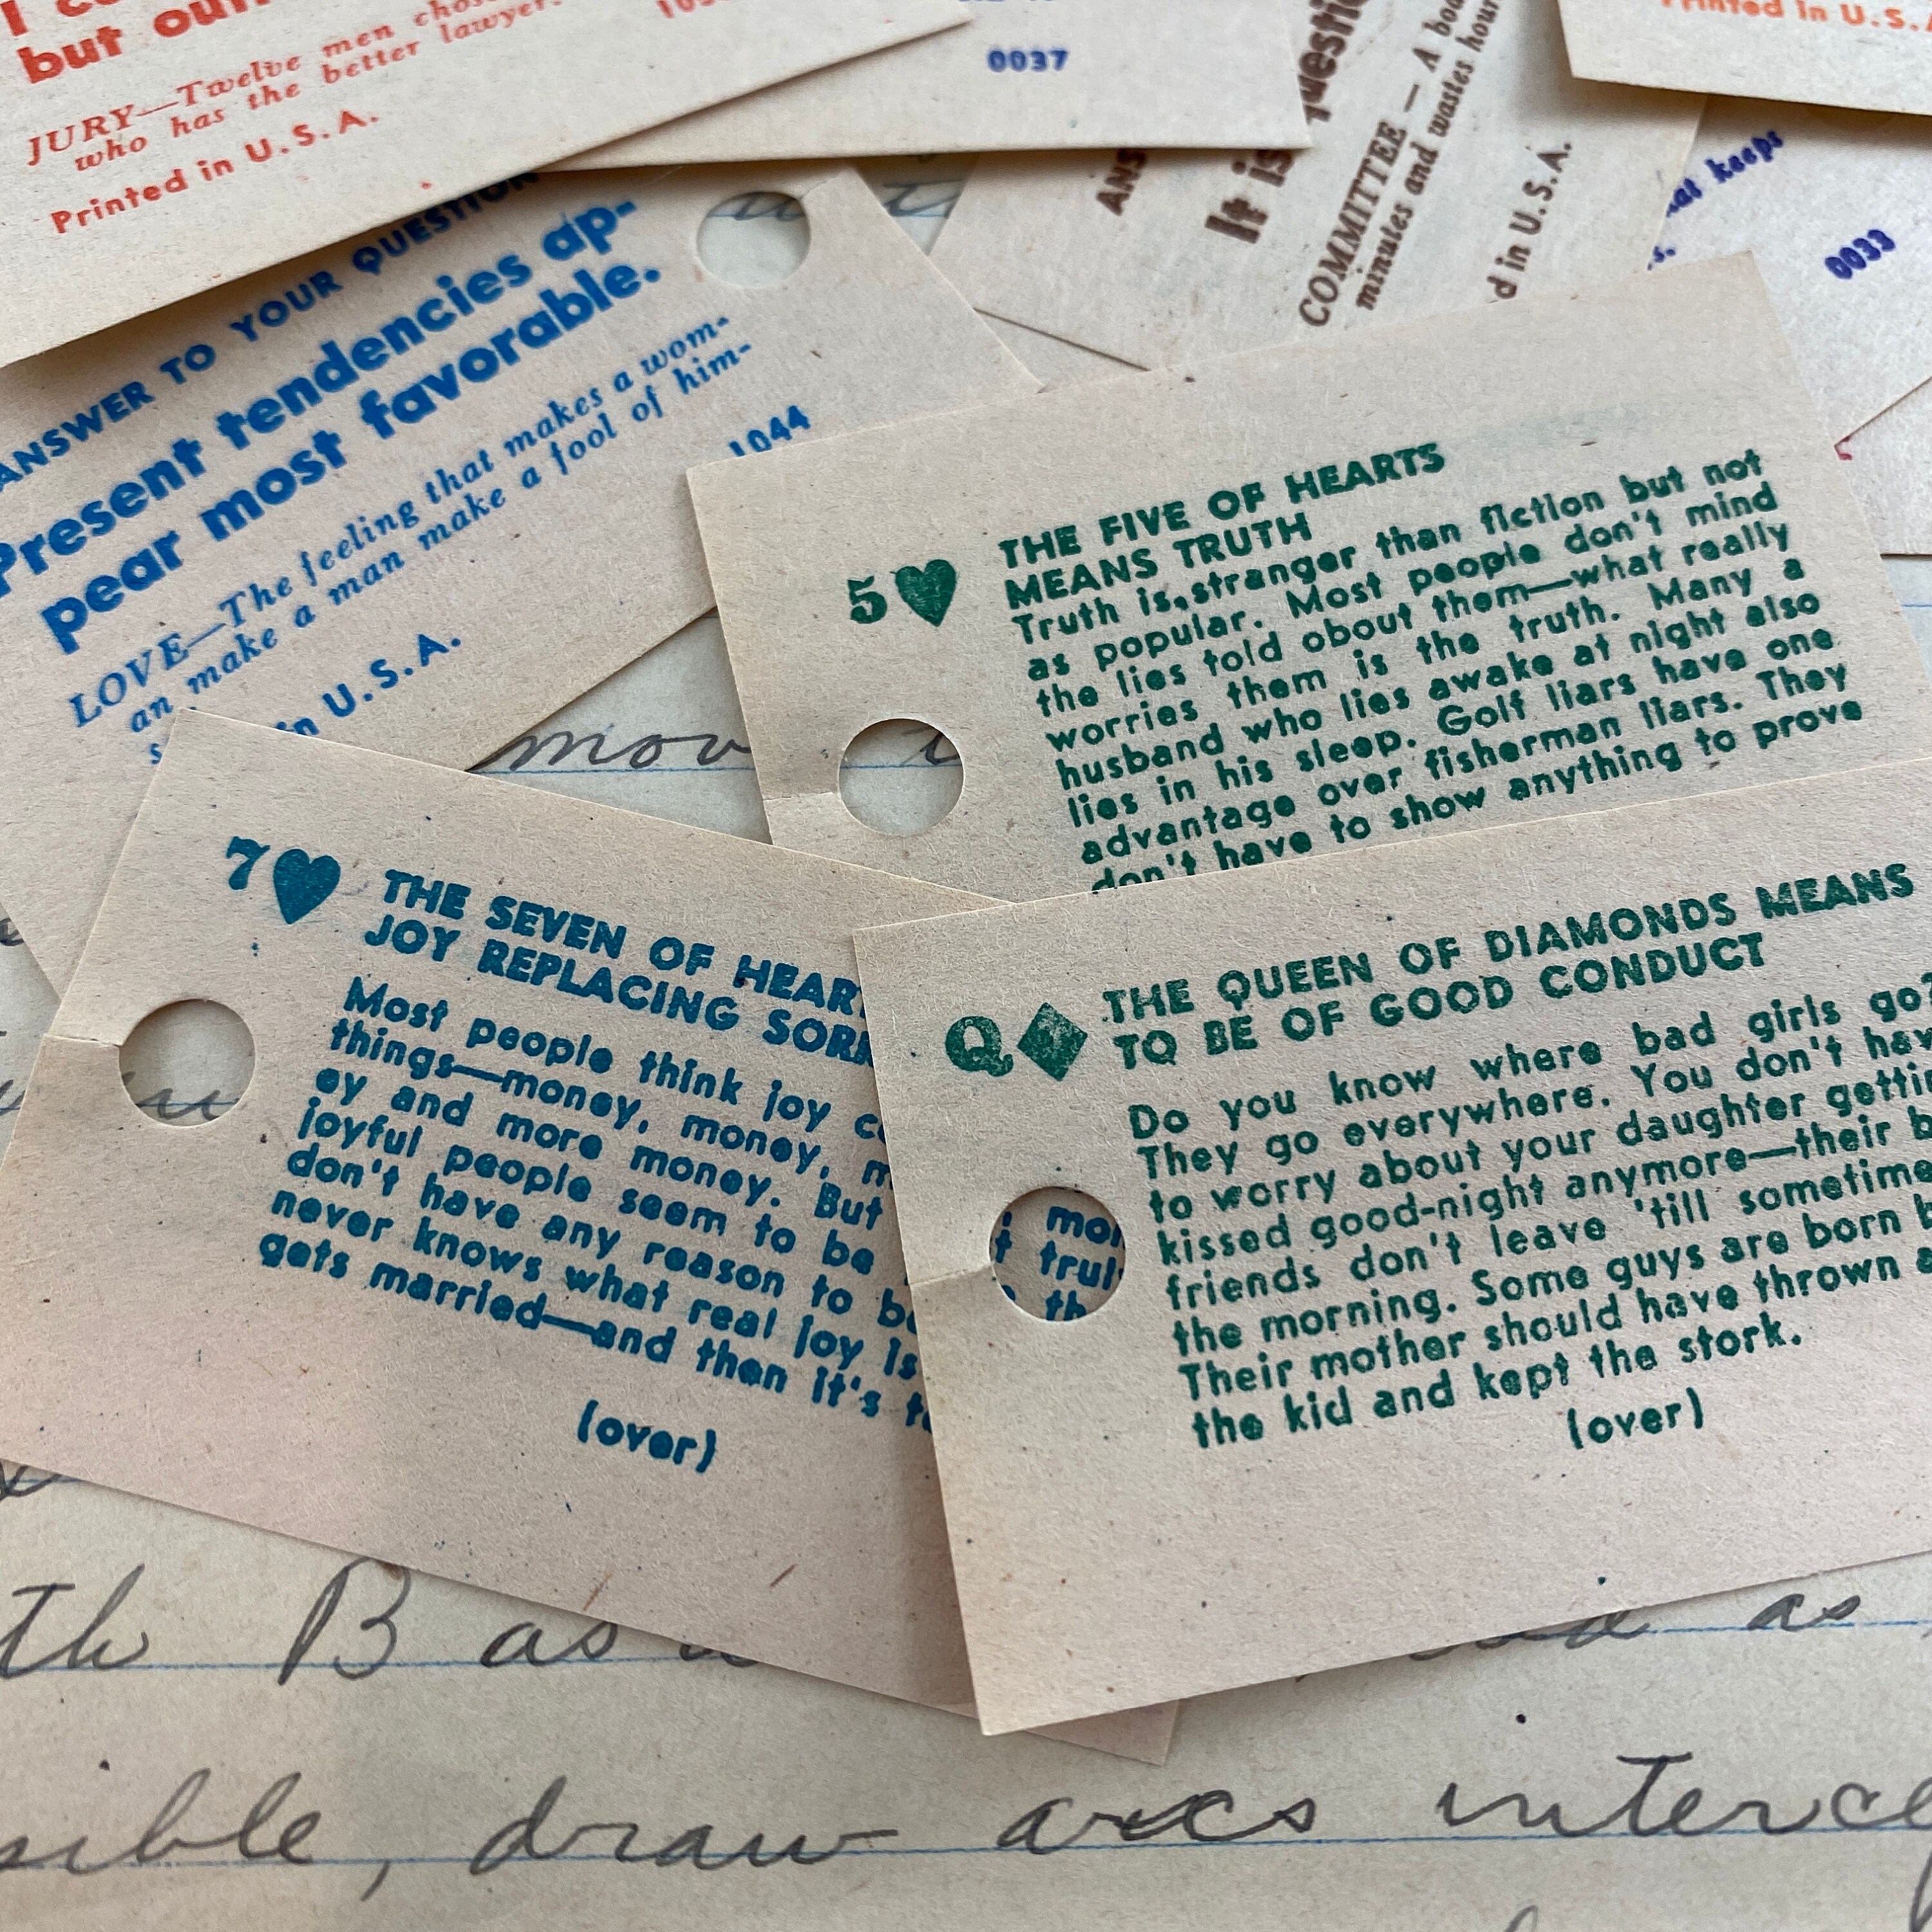 but our
JURY—Twelve men chos
who has the better lawyer.
Printed in U.S.A.
0037
It is
question
COMMITTEE — A bod
minutes and wastes hour
d in U.S.A.
Printed in U.S.A.
at keeps
0033
ANSWER TO YOUR QUESTION
Present tendencies ap-
pear most favorable.
LOVE—The feeling that makes a wom-
an make a man make a fool of him-
1044
in U.S.A.
5♥ THE FIVE OF HEARTS
MEANS TRUTH
Truth is stranger than fiction but not
as popular. Most people don't mind
the lies told about them—what really
worries them is the truth. Many a
husband who lies awake at night also
lies in his sleep. Golf liars have one
advantage over fisherman liars. They
don't have to show anything to prove
mov
7♥ THE SEVEN OF HEAR
JOY REPLACING SORR
Most people think joy c
things—money, money, m
ey and more money. But
joyful people seem to be
don't have any reason to b
never knows what real joy is
gets married—and then it's t
(over)
Q♦ THE QUEEN OF DIAMONDS MEANS
TO BE OF GOOD CONDUCT
Do you know where bad girls go?
They go everywhere. You don't hav
to worry about your daughter gettin
kissed good-night anymore—their b
friends don't leave 'till sometime
the morning. Some guys are born b
Their mother should have thrown a
the kid and kept the stork.
(over)
mo
trul
th
th B as as
sible, draw arcs interce